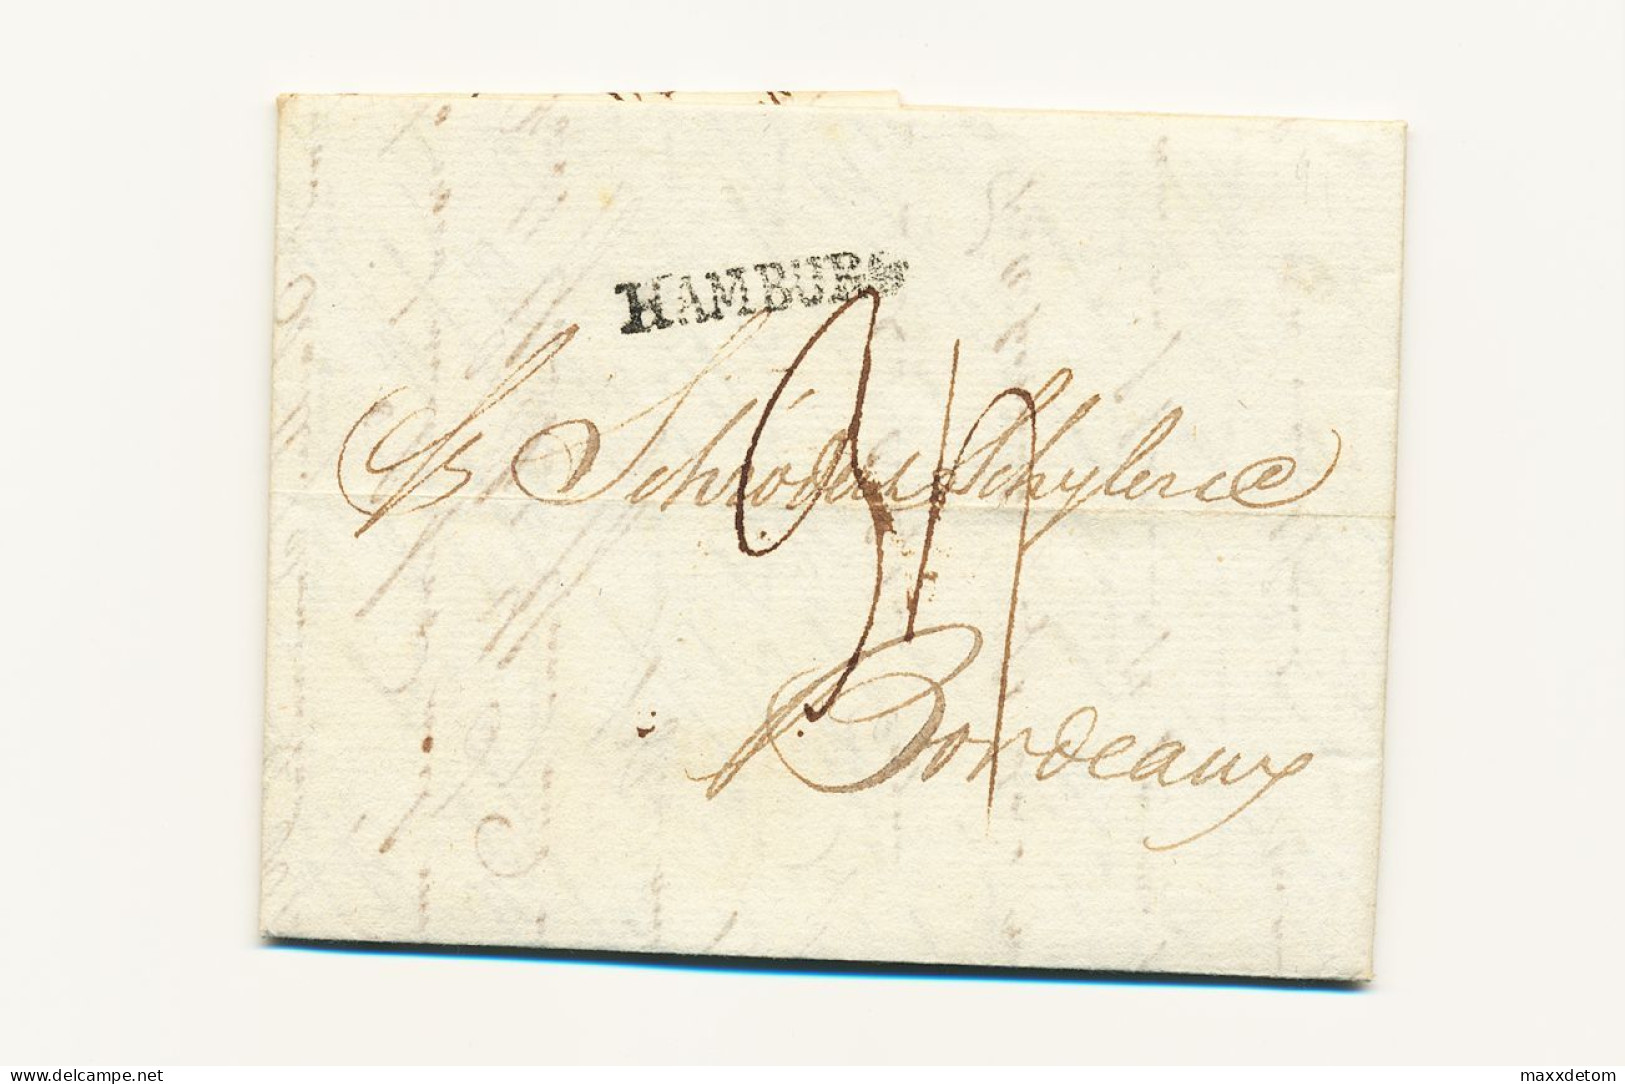 HAMBURG
Schröder & Schyler & Co
34
Bordeaux
www.delcampe.net
maxxdetom